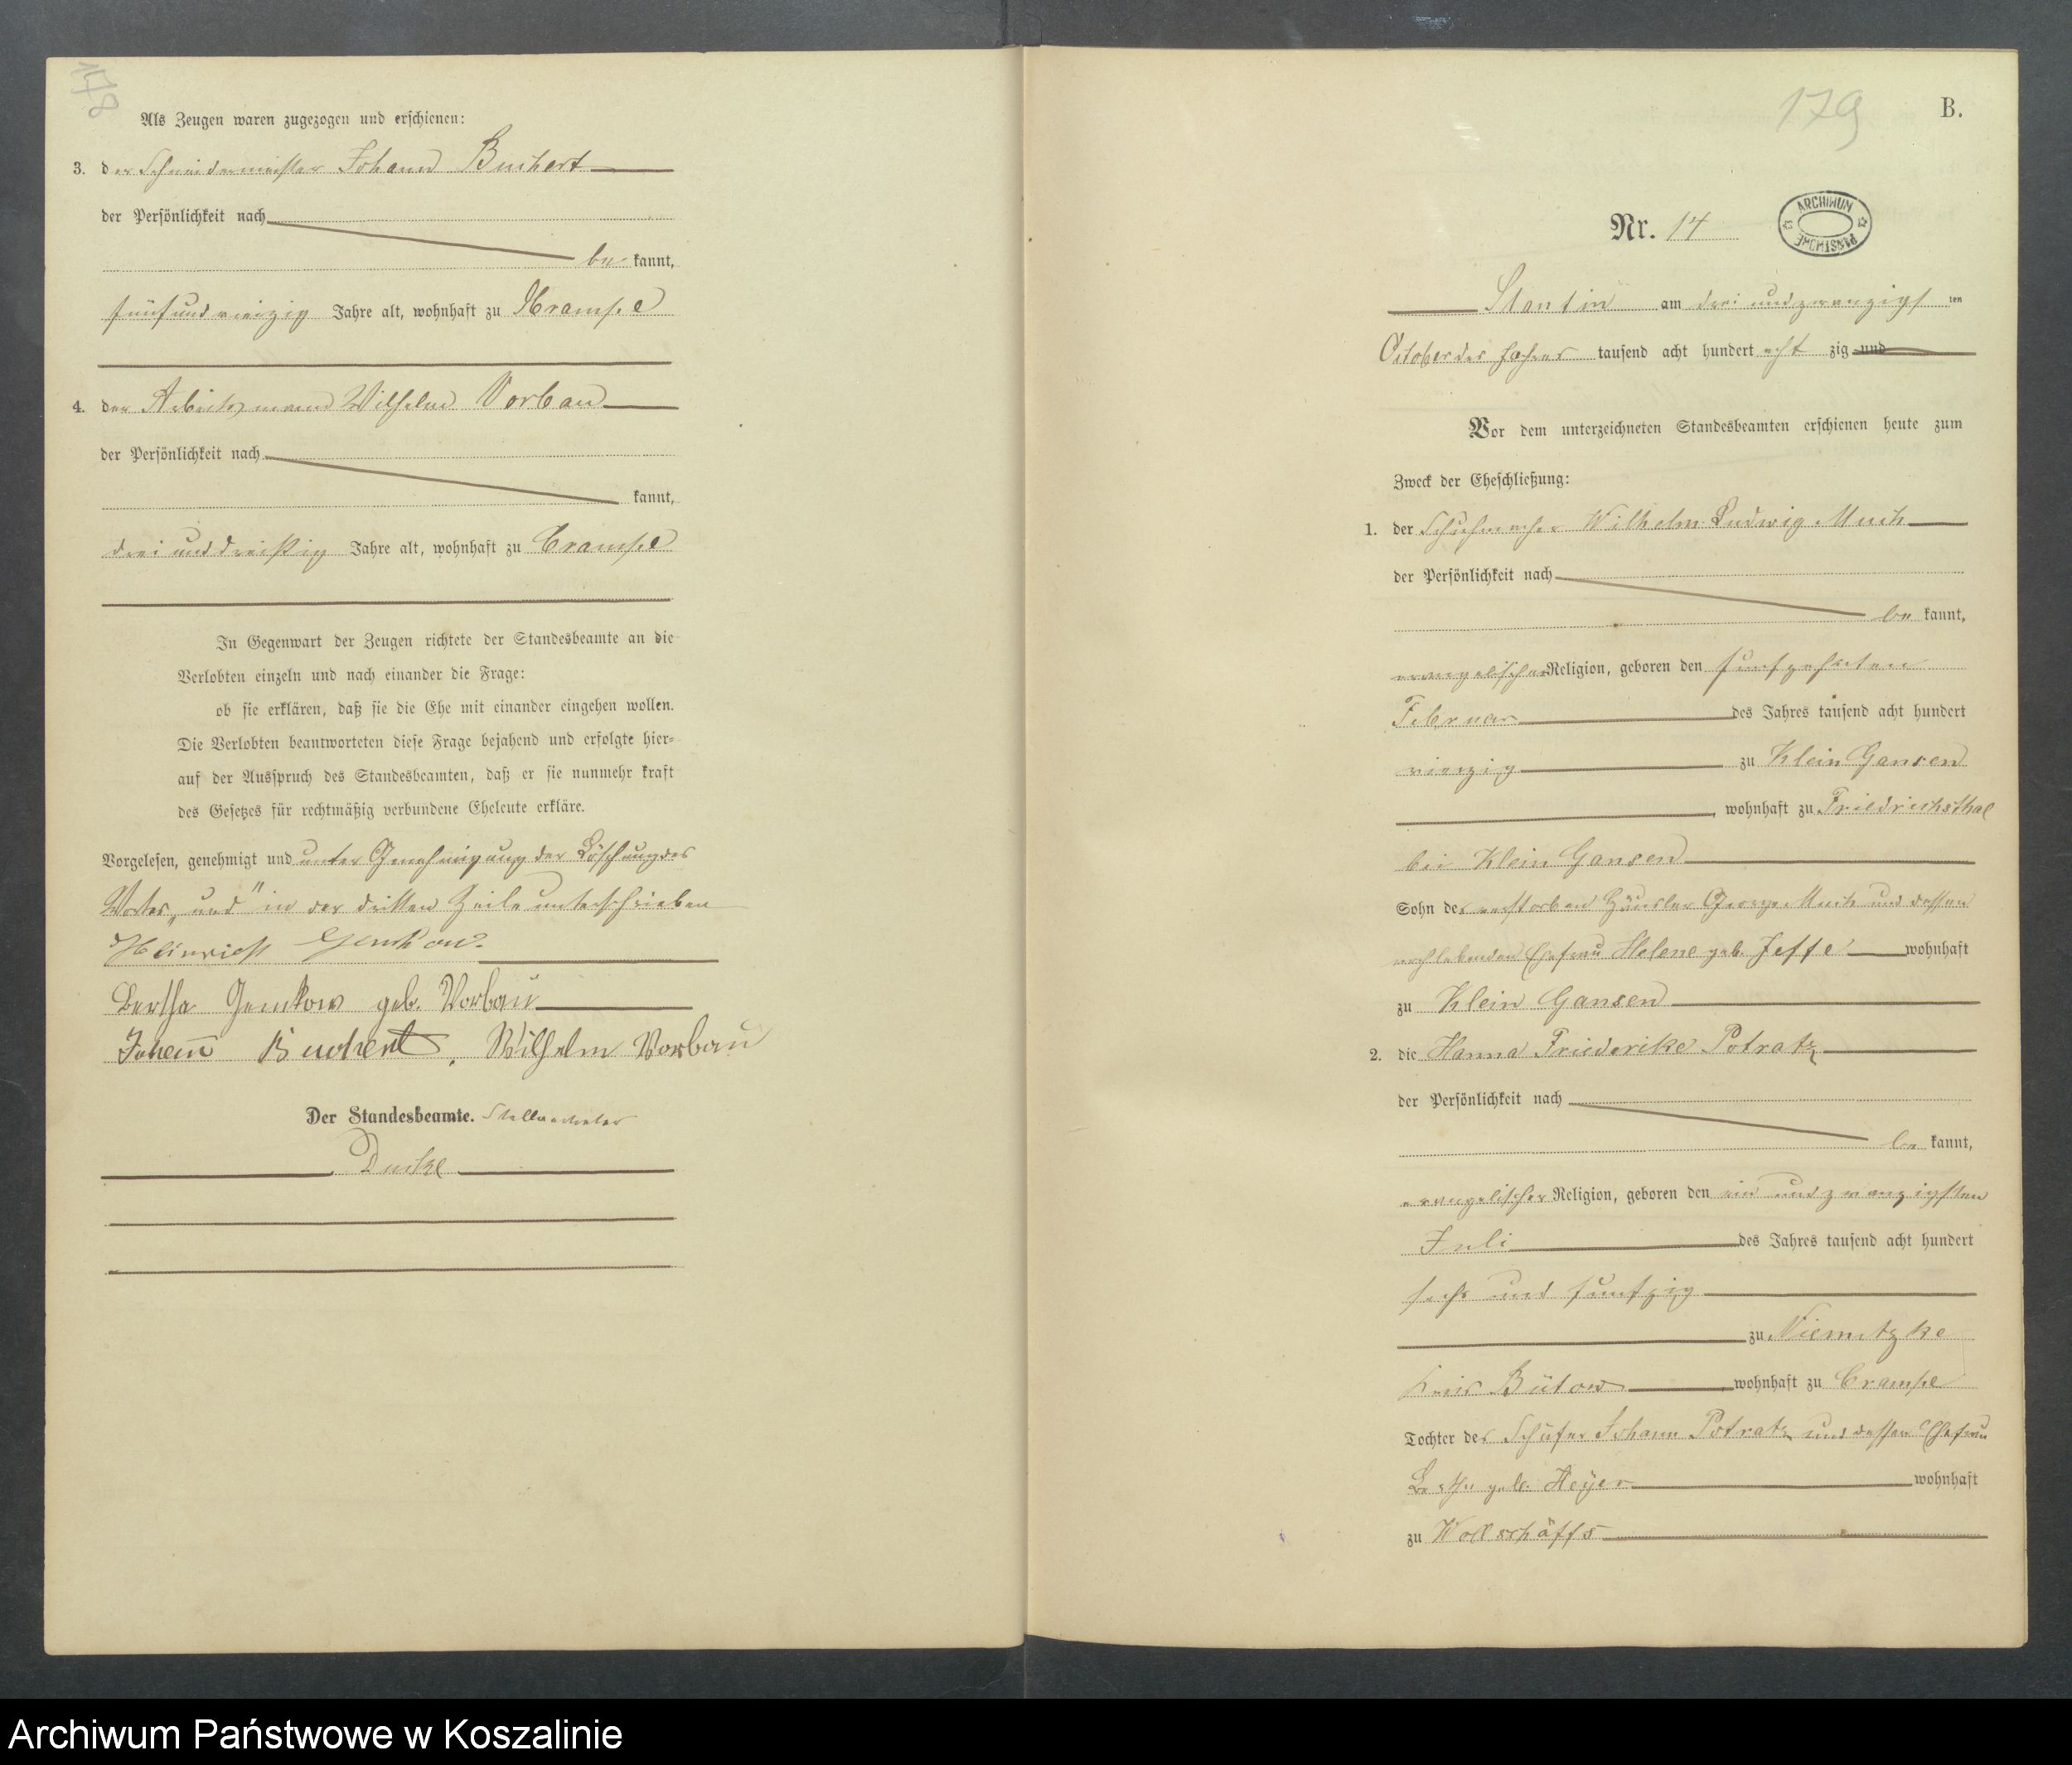 178
Als Zeugen waren zugezogen und erschienen:
3. der Schneidermeister Johann Buchert
der Persönlichkeit nach
be kannt,
fünfundvierzig Jahre alt, wohnhaft zu Krampe
4. der Arbeitsmann Wilhelm Vorbau
der Persönlichkeit nach
kannt,
drei und dreißig Jahre alt, wohnhaft zu Crampe
In Gegenwart der Zeugen richtete der Standesbeamte an die
Verlobten einzeln und nach einander die Frage:
ob sie erklären, daß sie die Ehe mit einander eingehen wollen.
Die Verlobten beantworteten diese Frage bejahend und erfolgte hier-
auf der Ausspruch des Standesbeamten, daß er sie nunmehr kraft
des Gesetzes für rechtmäßig verbundene Eheleute erkläre.
Vorgelesen, genehmigt und unter Genehmigung der Löschung des
Wortes „und" in der dritten Zeile unterschrieben
Heinrich Gemkow
Bertha Gemkow geb. Vorbau
Johann Buchert, Wilhelm Vorbau
Der Standesbeamte. Stellvertreter
179
B.
Nr. 14
ARCHIWUM PAŃSTWOWE
Stantin am drei und zwanzigs ten
October des Jahres tausend acht hundert acht zig und
Vor dem unterzeichneten Standesbeamten erschienen heute zum
Zweck der Eheschließung:
1. der Schuhmacher Wilhelm Ludwig Much
der Persönlichkeit nach
be kannt,
evangelischer Religion, geboren den funfzehnten
Februar des Jahres tausend acht hundert
vierzig zu Klein Gansen
, wohnhaft zu Friedrichsthal
bei Klein Gansen
Sohn des verstorben Häusler George Much und dessen
nochlebenden Ehefrau Helene geb. Jeffe wohnhaft
zu Klein Gansen
2. die Hanna Friederike Potratz
der Persönlichkeit nach
be kannt,
evangelischer Religion, geboren den ein und zwanzigsten
Juli des Jahres tausend acht hundert
sechs und funfzig
zu Niemitzke
Kreis Bütow wohnhaft zu Crampe
Tochter des Schäfer Johann Potratz und dessen Ehefrau
geb. Heyer wohnhaft
zu
Archiwum Państwowe w Koszalinie